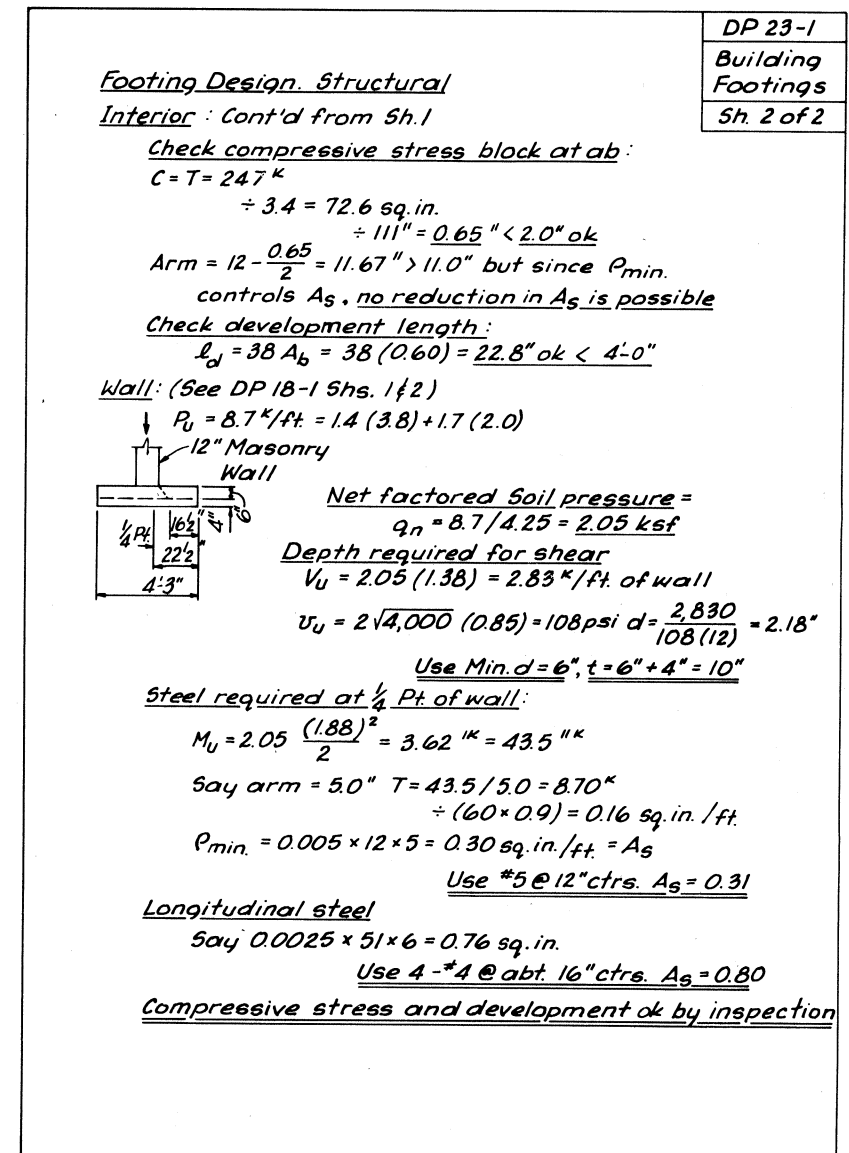 DP 23-1
Building
Footings
Sh. 2 of 2
Footing Design. Structural
Interior : Cont'd from Sh. 1
Check compressive stress block at ab :
C = T = 247 K
÷ 3.4 = 72.6 sq. in.
÷ 111" = 0.65 " < 2.0" ok
Arm = 12 - 0.65/2 = 11.67 " > 11.0" but since ρmin.
controls As , no reduction in As is possible
Check development length :
ld = 38 Ab = 38 (0.60) = 22.8" ok < 4'-0"
Wall : (See DP 18-1 Shs. 1 & 2)
Pu = 8.7 K/ft. = 1.4 (3.8) + 1.7 (2.0)
12" Masonry
Wall
Net factored Soil pressure =
qn = 8.7 / 4.25 = 2.05 ksf
1/4 Pt.
16 1/2"
4"
6"
22 1/2"
4'-3"
Depth required for shear
Vu = 2.05 (1.38) = 2.83 K/ft. of wall
vu = 2 √4,000 (0.85) = 108 psi d = 2,830 / 108 (12) = 2.18"
Use Min. d = 6", t = 6" + 4" = 10"
Steel required at 1/4 Pt. of wall :
Mu = 2.05 (1.88)²/2 = 3.62 'K = 43.5 "K
Say arm = 5.0" T = 43.5 / 5.0 = 8.70 K
÷ (60 × 0.9) = 0.16 sq. in. / ft.
ρmin. = 0.005 × 12 × 5 = 0.30 sq. in. / ft. = As
Use #5 @ 12" ctrs. As = 0.31
Longitudinal steel
Say 0.0025 × 51 × 6 = 0.76 sq. in.
Use 4 - #4 @ abt. 16" ctrs. As = 0.80
Compressive stress and development ok by inspection